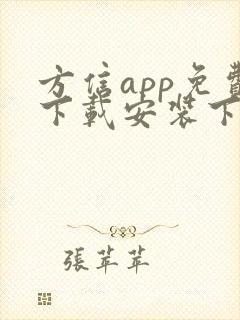 方信app免費
下載安裝下
張苹苹